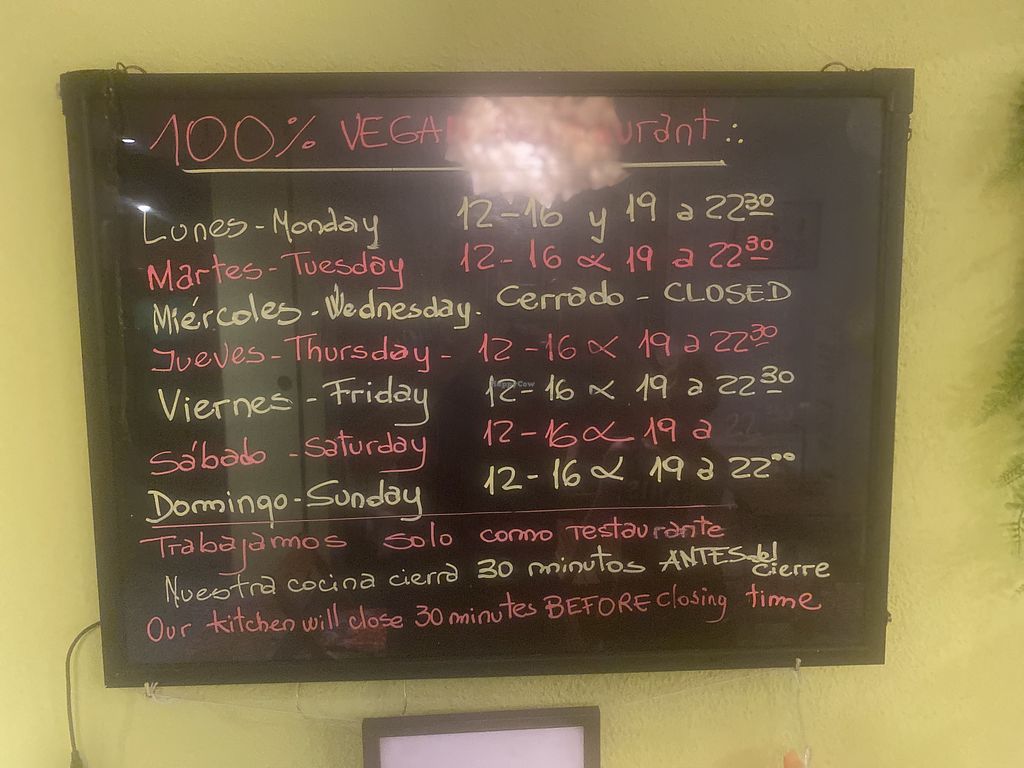 100% VEGA urant :.
Lunes - Monday 12-16 y 19 a 22³⁰
Martes - Tuesday 12-16 & 19 a 22³⁰
Miércoles - Wednesday. Cerrado - CLOSED
Jueves - Thursday - 12-16 & 19 a 22³⁰
Viernes - Friday 12-16 & 19 a 22³⁰
Sábado - Saturday 12-16 & 19 a
Domingo - Sunday 12-16 & 19 a 22⁰⁰
Trabajamos solo como restaurante
Nuestra cocina cierra 30 minutos ANTES del cierre
Our kitchen will close 30 minutes BEFORE closing time